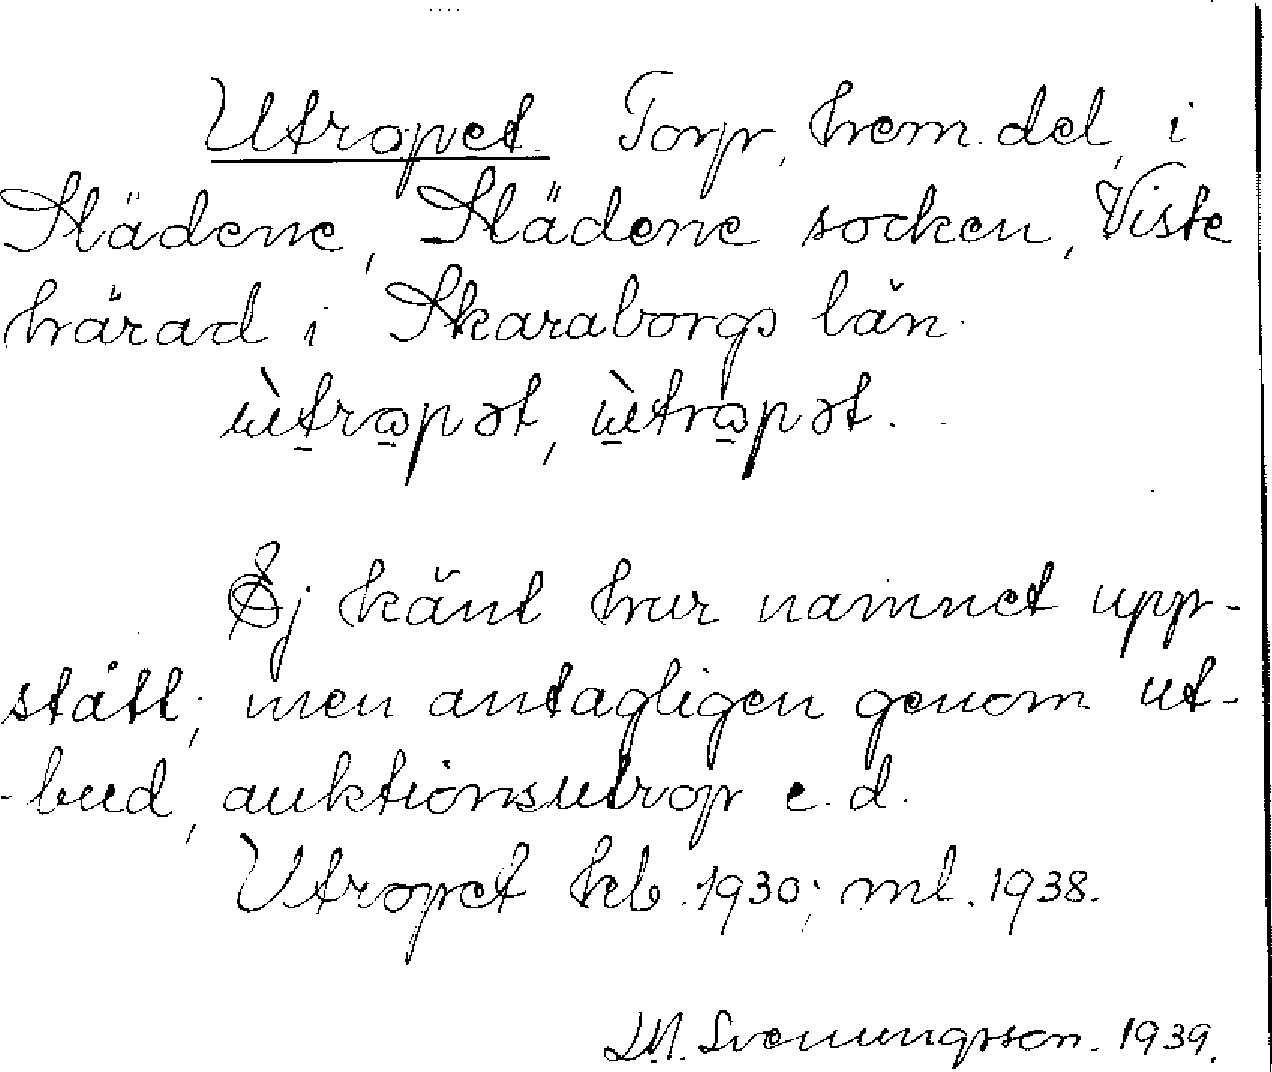 Utropet. Torp, hem. del, i
Slädene, Slädene socken, Viste
härad i Skaraborgs län.
ùtrꞷpət, ùtrꞷpət.
Ej känt hur namnet upp-
stått; men antagligen genom ut-
-bud, auktionsutrop e. d.
Utropet kb. 1930; ml. 1938.
Svenungsson. 1939.